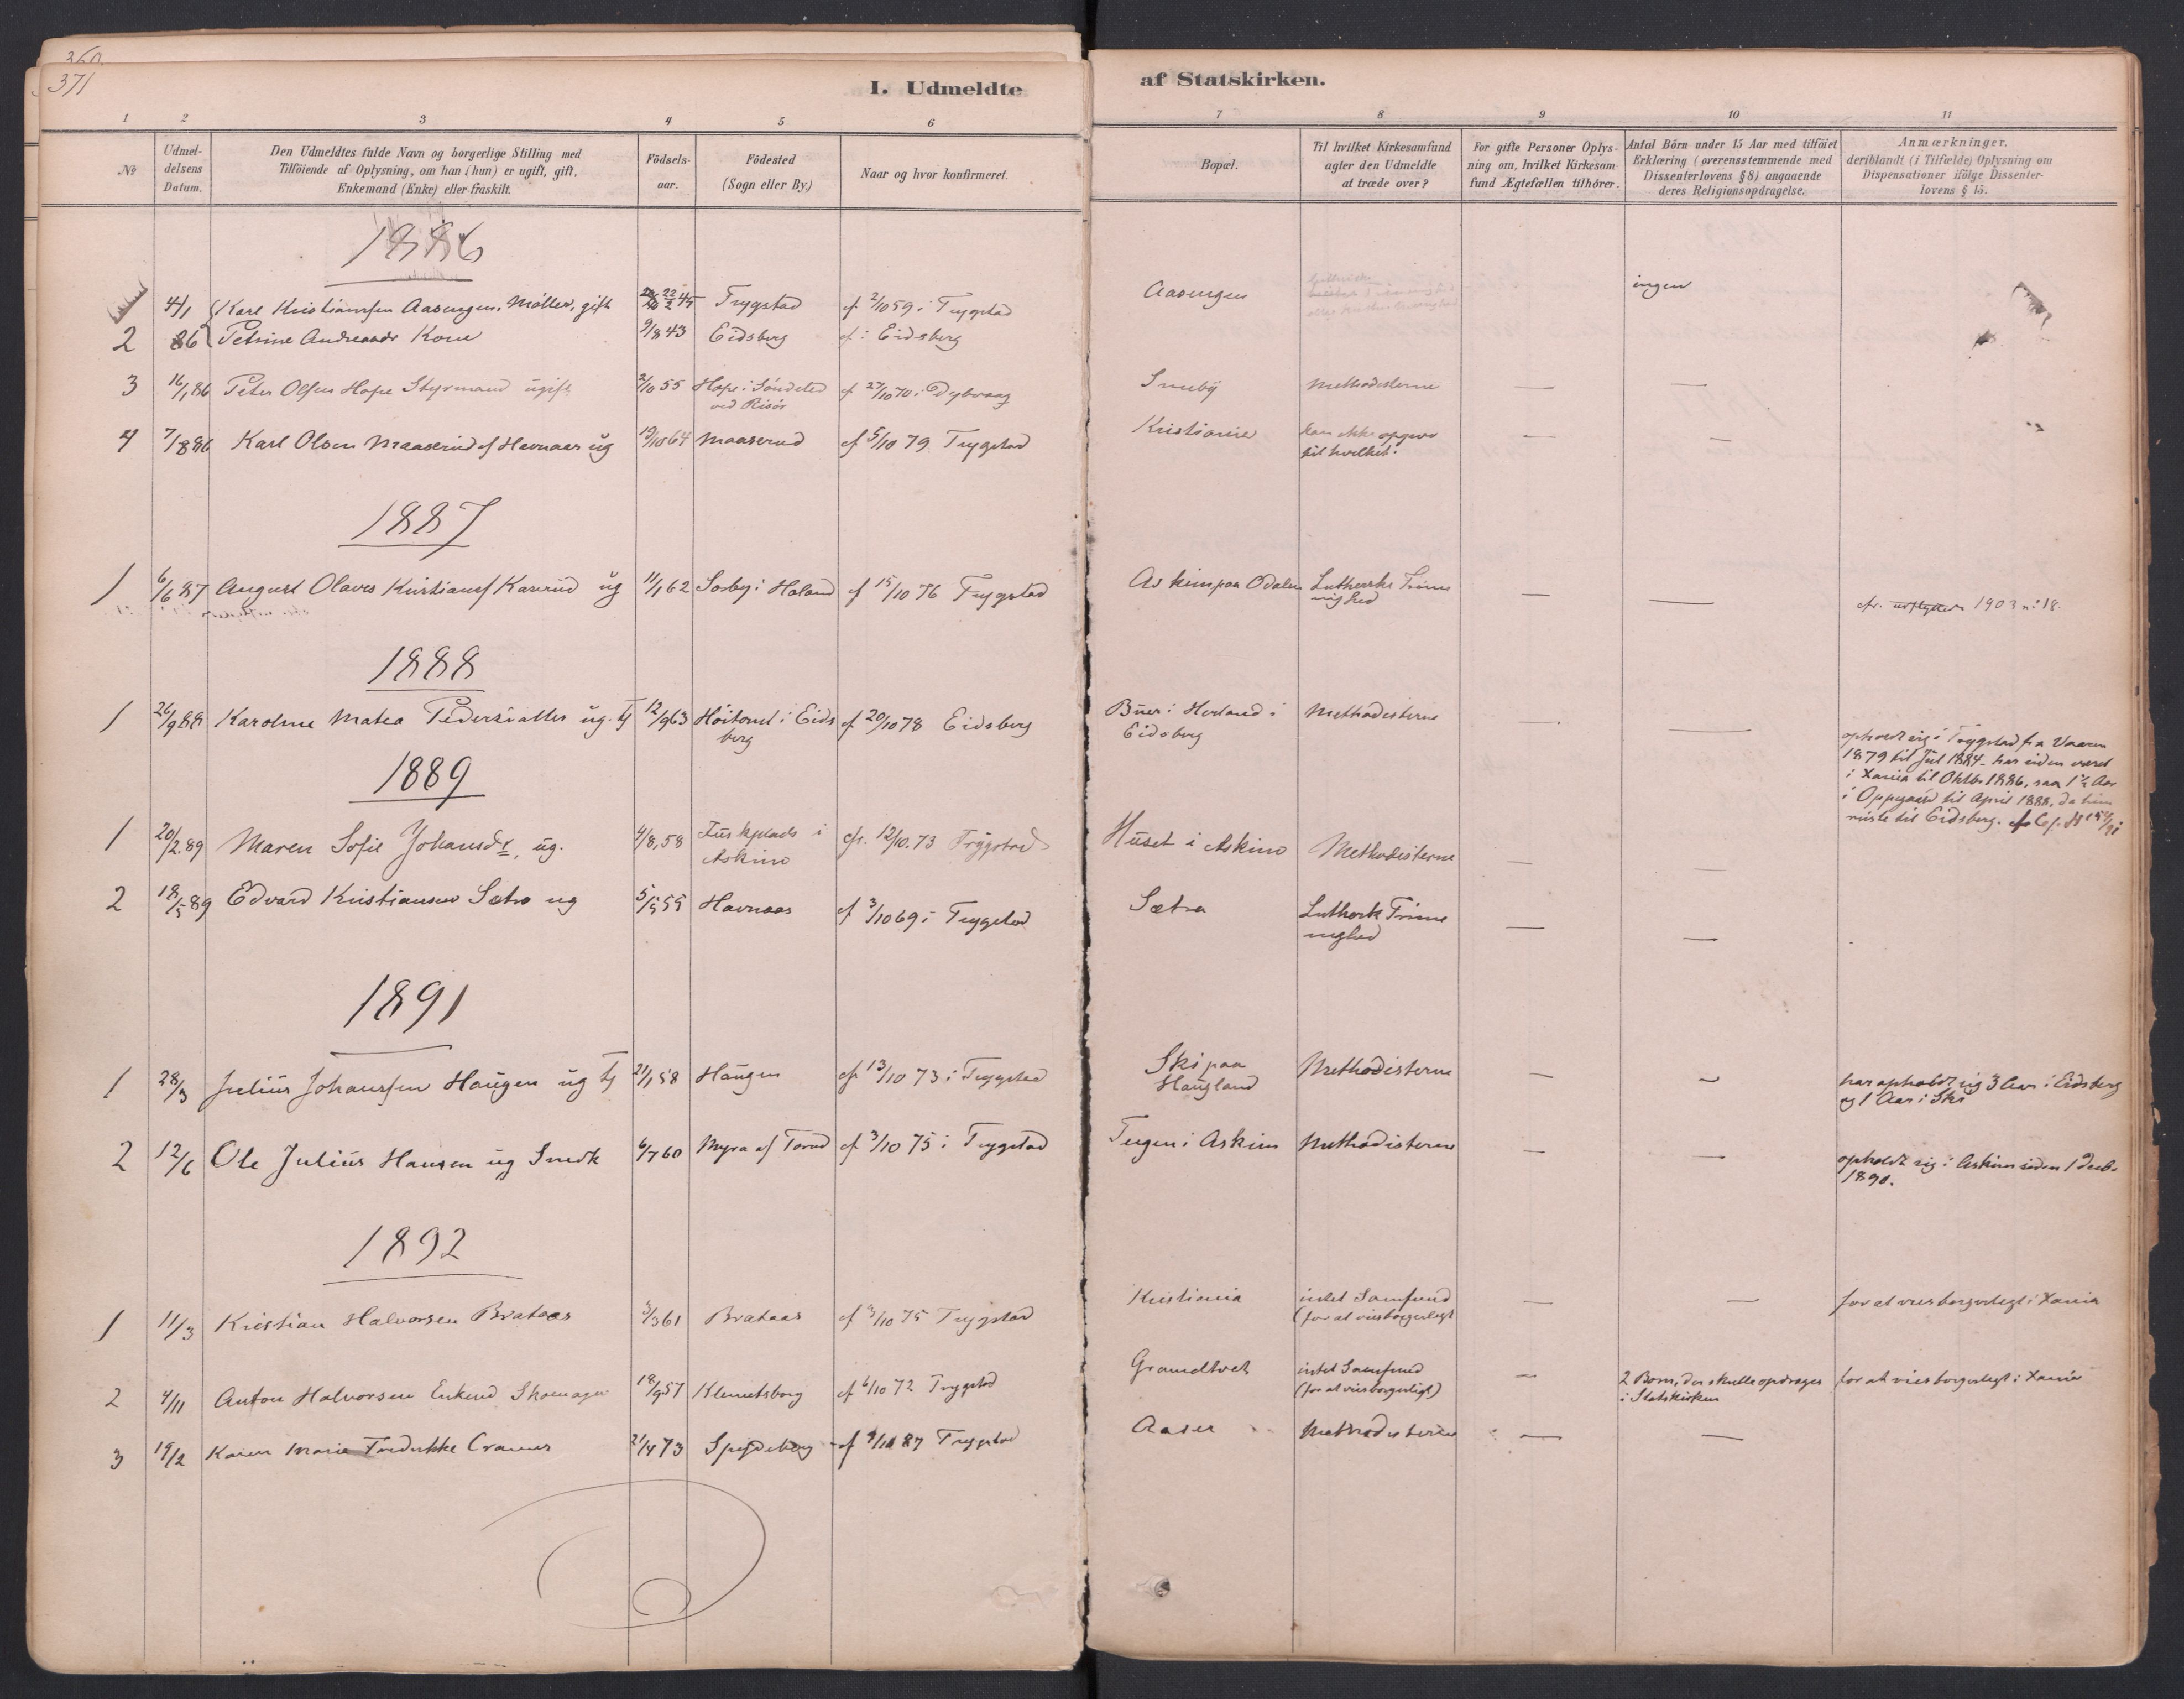 360.
371
I. Udmeldte
af Statskirken.
1 2 3 4 5 6 7 8 9 10 11
No
Udmel-
delsens
Datum.
Den Udmeldtes fulde Navn og borgerlige Stilling med
Tilføiende af Oplysning, om han (hun) er ugift, gift,
Enkemand (Enke) eller fraskilt.
Födsels-
aar.
Födested
(Sogn eller By.)
Naar og hvor konfirmeret.
Bopæl.
Til hvilket Kirkesamfund
agter den Udmeldte
at træde over?
For gifte Personer Oplys-
ning om, hvilket Kirkesam-
fund Ægtefællen tilhörer.
Antal Börn under 15 Aar med tilföiet
Erklæring (overensstemmende med
Dissenterlovens § 8) angaaende
deres Religionsopdragelse.
Anmærkninger,
deriblandt (i Tilfælde) Oplysning om
Dispensationer ifölge Dissenter-
lovens § 15.
1886
4/1 Karl Kristiansen Aasengen, Möller, gift 22/2 45 Trygstad cf 2/10 59 i Trygstad Aasengen ingen
2 86 Petrine Andreasdr Kone 9/8 43 Eidsberg cf i Eidsberg
3 16/1 86 Peter Olsen Hope Styrmand ugift 2/10 55 Hope i Söndeled cf 27/10 70 i Dybvaag Smeby Methodisterne — —
ved Risör
4 7/8 86 Karl Olsen Maaserud af Havnaas ug 19/10 64 Maaserud cf 5/10 79 Trygstad Kristiania kan ikke opgive — —
til hvilket.
1887
1 6/6 87 August Olaves Kristians Kaserud ug 11/1 62 Sorby i Holand cf 15/10 76 Trygstad Askim paa Odalen Lutherske Trine — — cfr. udflyttede 1903 n: 18.
nighed
1888
1 26/9 88 Karoline Matea Pedersdatter ug. Tj 12/9 63 Höitomt i Eids cf 20/10 78 Eidsberg Buer i Herland i Methodisterne — —
berg Eidsberg
opholdt sig i Trygstad fra Vaaren
1879 til Jul 1884 - har siden været
i Xania til Oktbr 1886, saa 1½ Aar
i Oppegaard til April 1888, da hun
reiste til Eidsberg.
1889
1 20/2 89 Maren Sofie Johansdr, ug. 4/8, 58 Tuskplads i cfr. 12/10. 73 Trygstad Huset i Askim Methodisterne — —
Askim
2 18/5 89 Edvard Kristiansen Sætra ug 5/5 55 Havnaas cf 3/10 69 i Trygstad Sætra Luthersk Trine — —
nighed
1891
1 28/3 Julius Johanssen Haugen ug Tj 21/1 58 Haugen cfr 13/10 73 i Trygstad Ski paa Methodisterne — — har opholdt sig 3 Aar i Eidsberg
Haugland og 1 Aar i Ski
2 12/6 Ole Julius Hansen ug Smedk 6/7 60 Myra af Torud cf 3/10 75 i Trygstad Tugen i Askim Methodisterne — — opholdt sig i Askim siden 1 Decb.
1890.
1892
1 11/3 Kristian Halvorsen Brataas 3/3 61 Brataas cf 3/10 75 Trygstad Kristiania intet Samfund — — for at vies borgerlegt i Xania
(for at vies borgerligt
2 4/11 Anton Halvorsen Enkemd Skomager 18/9 57 Klemetsborg cf 6/10 72 Trygstad Gramdtvet intet Samfund — 2 Born, der skulle opdrages for at vies borgerlegt i Xania
(for at vies borgerligt) i Statskirken
3 19/2 Karen Marie Fredrikke Cramer 21/4 73 Spydeberg cf 87 Trygstad Aaser Methodisterne — —